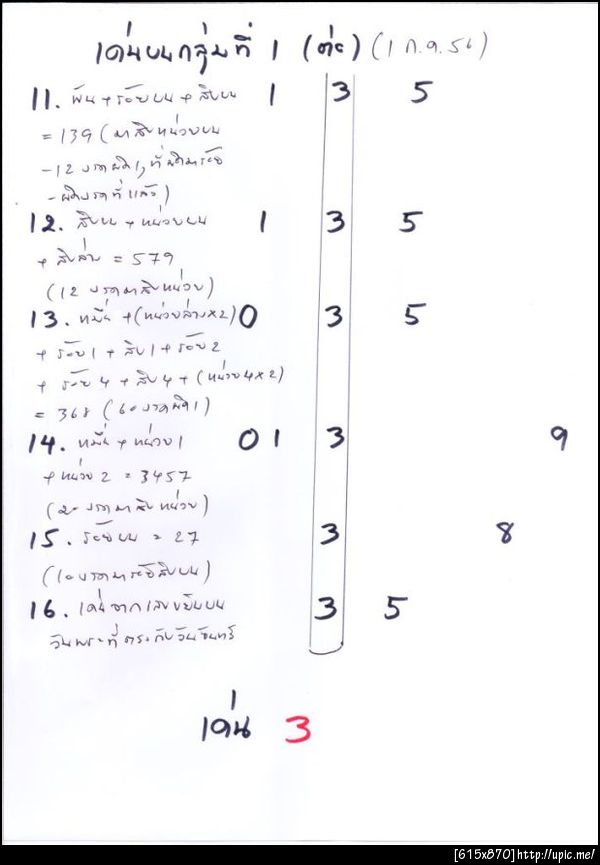 เด่นบนกลุ่มที่ 1 (ต่อ) (1 ก.ย.56)
11. พัน + ร้อยบน + สิบบน 1 3 5
= 139 (มาสิบหน่วยบน
-12 งวดผิด 1, ที่ผิดมาร้อย
- ผิดงวดที่แล้ว)
12. สิบบน + หน่วยบน 1 3 5
+ สิบล่าง = 579
(12 งวดมาสิบหน่วย)
13. หมื่น + (หน่วยล่าง×2) 0 3 5
+ ร้อย 1 + สิบ 1 + ร้อย 2
+ ร้อย 4 + สิบ 4 + (หน่วย 4×2)
= 368 (60 งวดผิด 1)
14. หมื่น + หน่วย 1 0 1 3 9
+ หน่วย 2 = 3457
(20 งวดมาสิบหน่วย)
15. ร้อยบน = 27 3 8
(10 งวดมาร้อยสิบบน)
16. เด่นจากเลขขยันบน 3 5
วันพระที่ตรงกับวันจันทร์
เด่น 3
[615x870]http://upic.me/